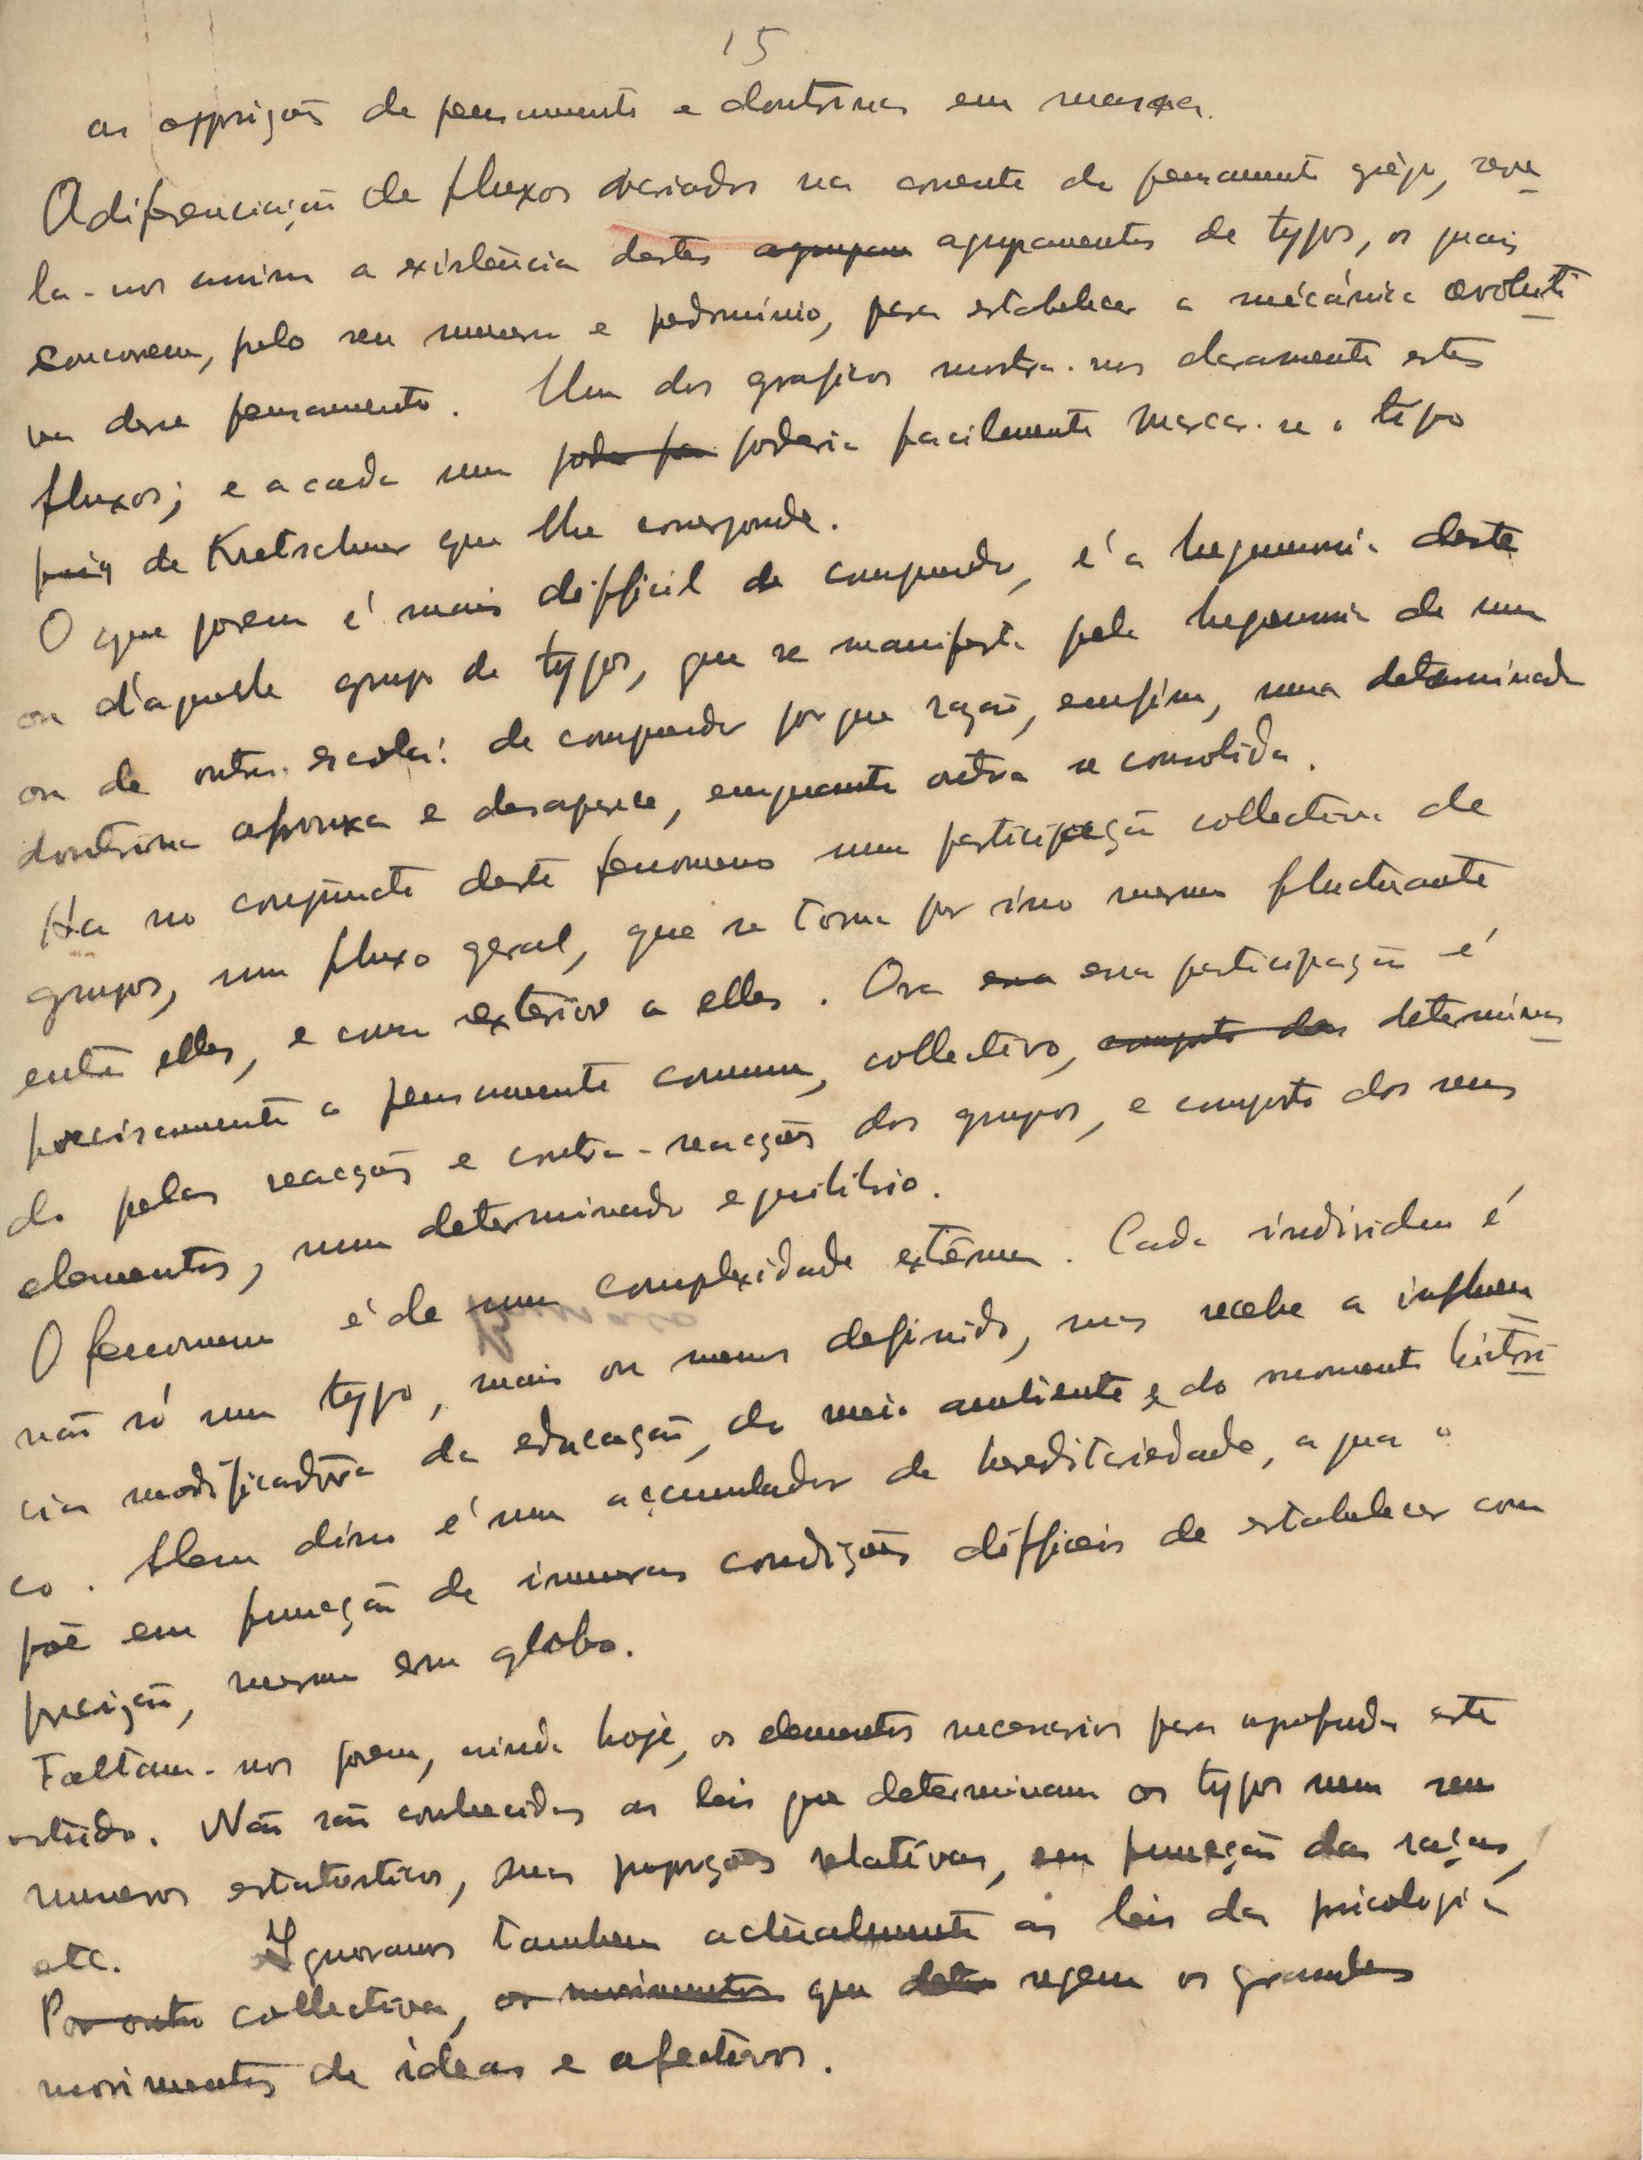 15
as opposições de pensamento e doutrinas em marcha.
A diferenciação de fluxos variados na corrente do pensamento grégo, reve
la-nos assim a existência destes agrupam agrupamentos de typos, os quais
concorrem, pelo seu numero e predominio, para estabelecer a mécánica evoluti
va desse pensamento. Um dos graficos mostra-nos claramente estes
fluxos; e a cada um pode fa poderia facilmente marcar-se o tipo
de Kretschmer que lhe corresponde.
O que porem é mais difficil de compreender, é a hegemonia deste
ou d'aquele grupo de typos, que se manifesta pela hegemonia de uma
ou de outra escola: de compreender por que razão, emfim, uma determinada
doutrina afrouxa e desaparece, emquanto outra se consolida.
Ha no conjuncto deste fenomeno uma participação collectiva de
grupos, um fluxo geral, que se torna por isso mesmo fluctuante
entre elles, e como exterior a elles. Ora essa essa participação é
precisamente o pensamento comum, collectivo, composto das determina
do pelas reacções e contra-reacções dos grupos, e composto dos seus
elementos, num determinado equilibrio.
O fenomeno é de uma complexidade extrema. Cada individuo é
não só um typo, mais ou menos definido, mas recebe a influen
cia modificadora da educação, do meio ambiente e do momento histori
co. Alem disso é um accumulador de hereditariedade, a qual o
põe em funcção de inumeras condições difficeis de estabelecer com
precizão, mesmo em globo.
Faltam-nos porem, ainda hoje, os elementos necessarios para aprofundar este
estudo. Não são conhecidas as leis que determinam os typos nem seus
numeros estatisticos, suas proporções relativas, em funcção das raças,
etc. Ignoramos tambem actualmente as leis da psicologia
Por outro collectiva, os movimentos que dete regem os grandes
movimentos de idéas e afectivos.